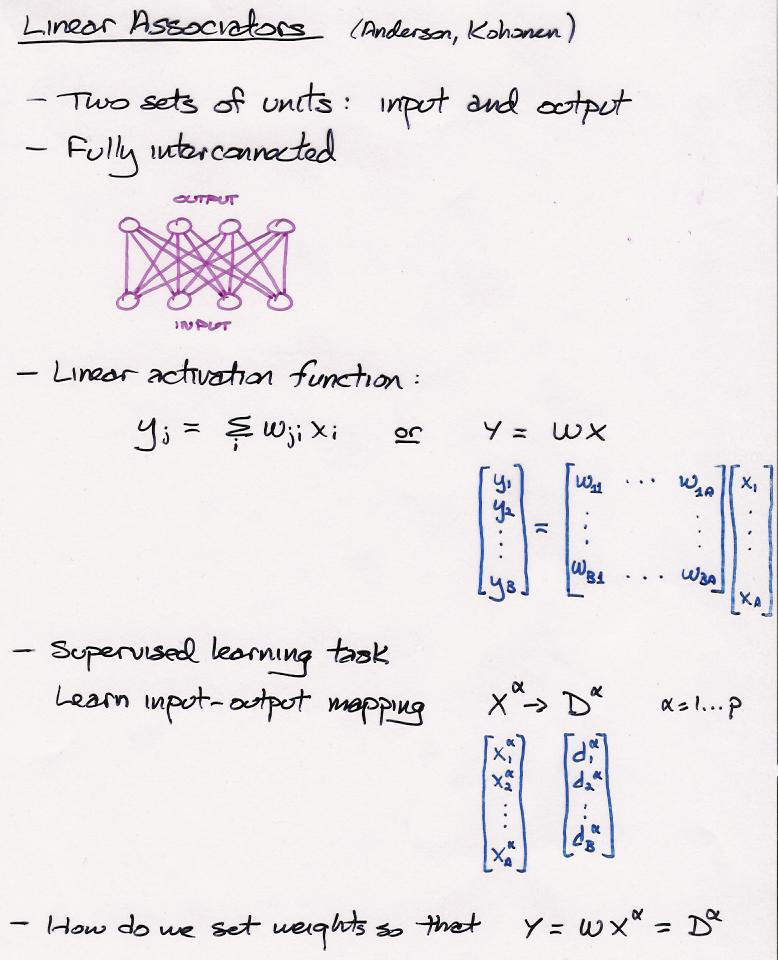 Linear Associators (Anderson, Kohonen)
- Two sets of units: input and output
- Fully interconnected
OUTPUT
INPUT
- Linear activation function:
yj = Σi wji xi or Y = WX
[y1 y2 ⋮ yB] = [w11 ... w1A ⋮ ⋮ wB1 ... wBA] [x1 ⋮ xA]
- Supervised learning task
Learn input-output mapping X^α → D^α α=1...p
[x1^α x2^α ⋮ xA^α] [d1^α d2^α ⋮ dB^α]
- How do we set weights so that Y = WX^α = D^α